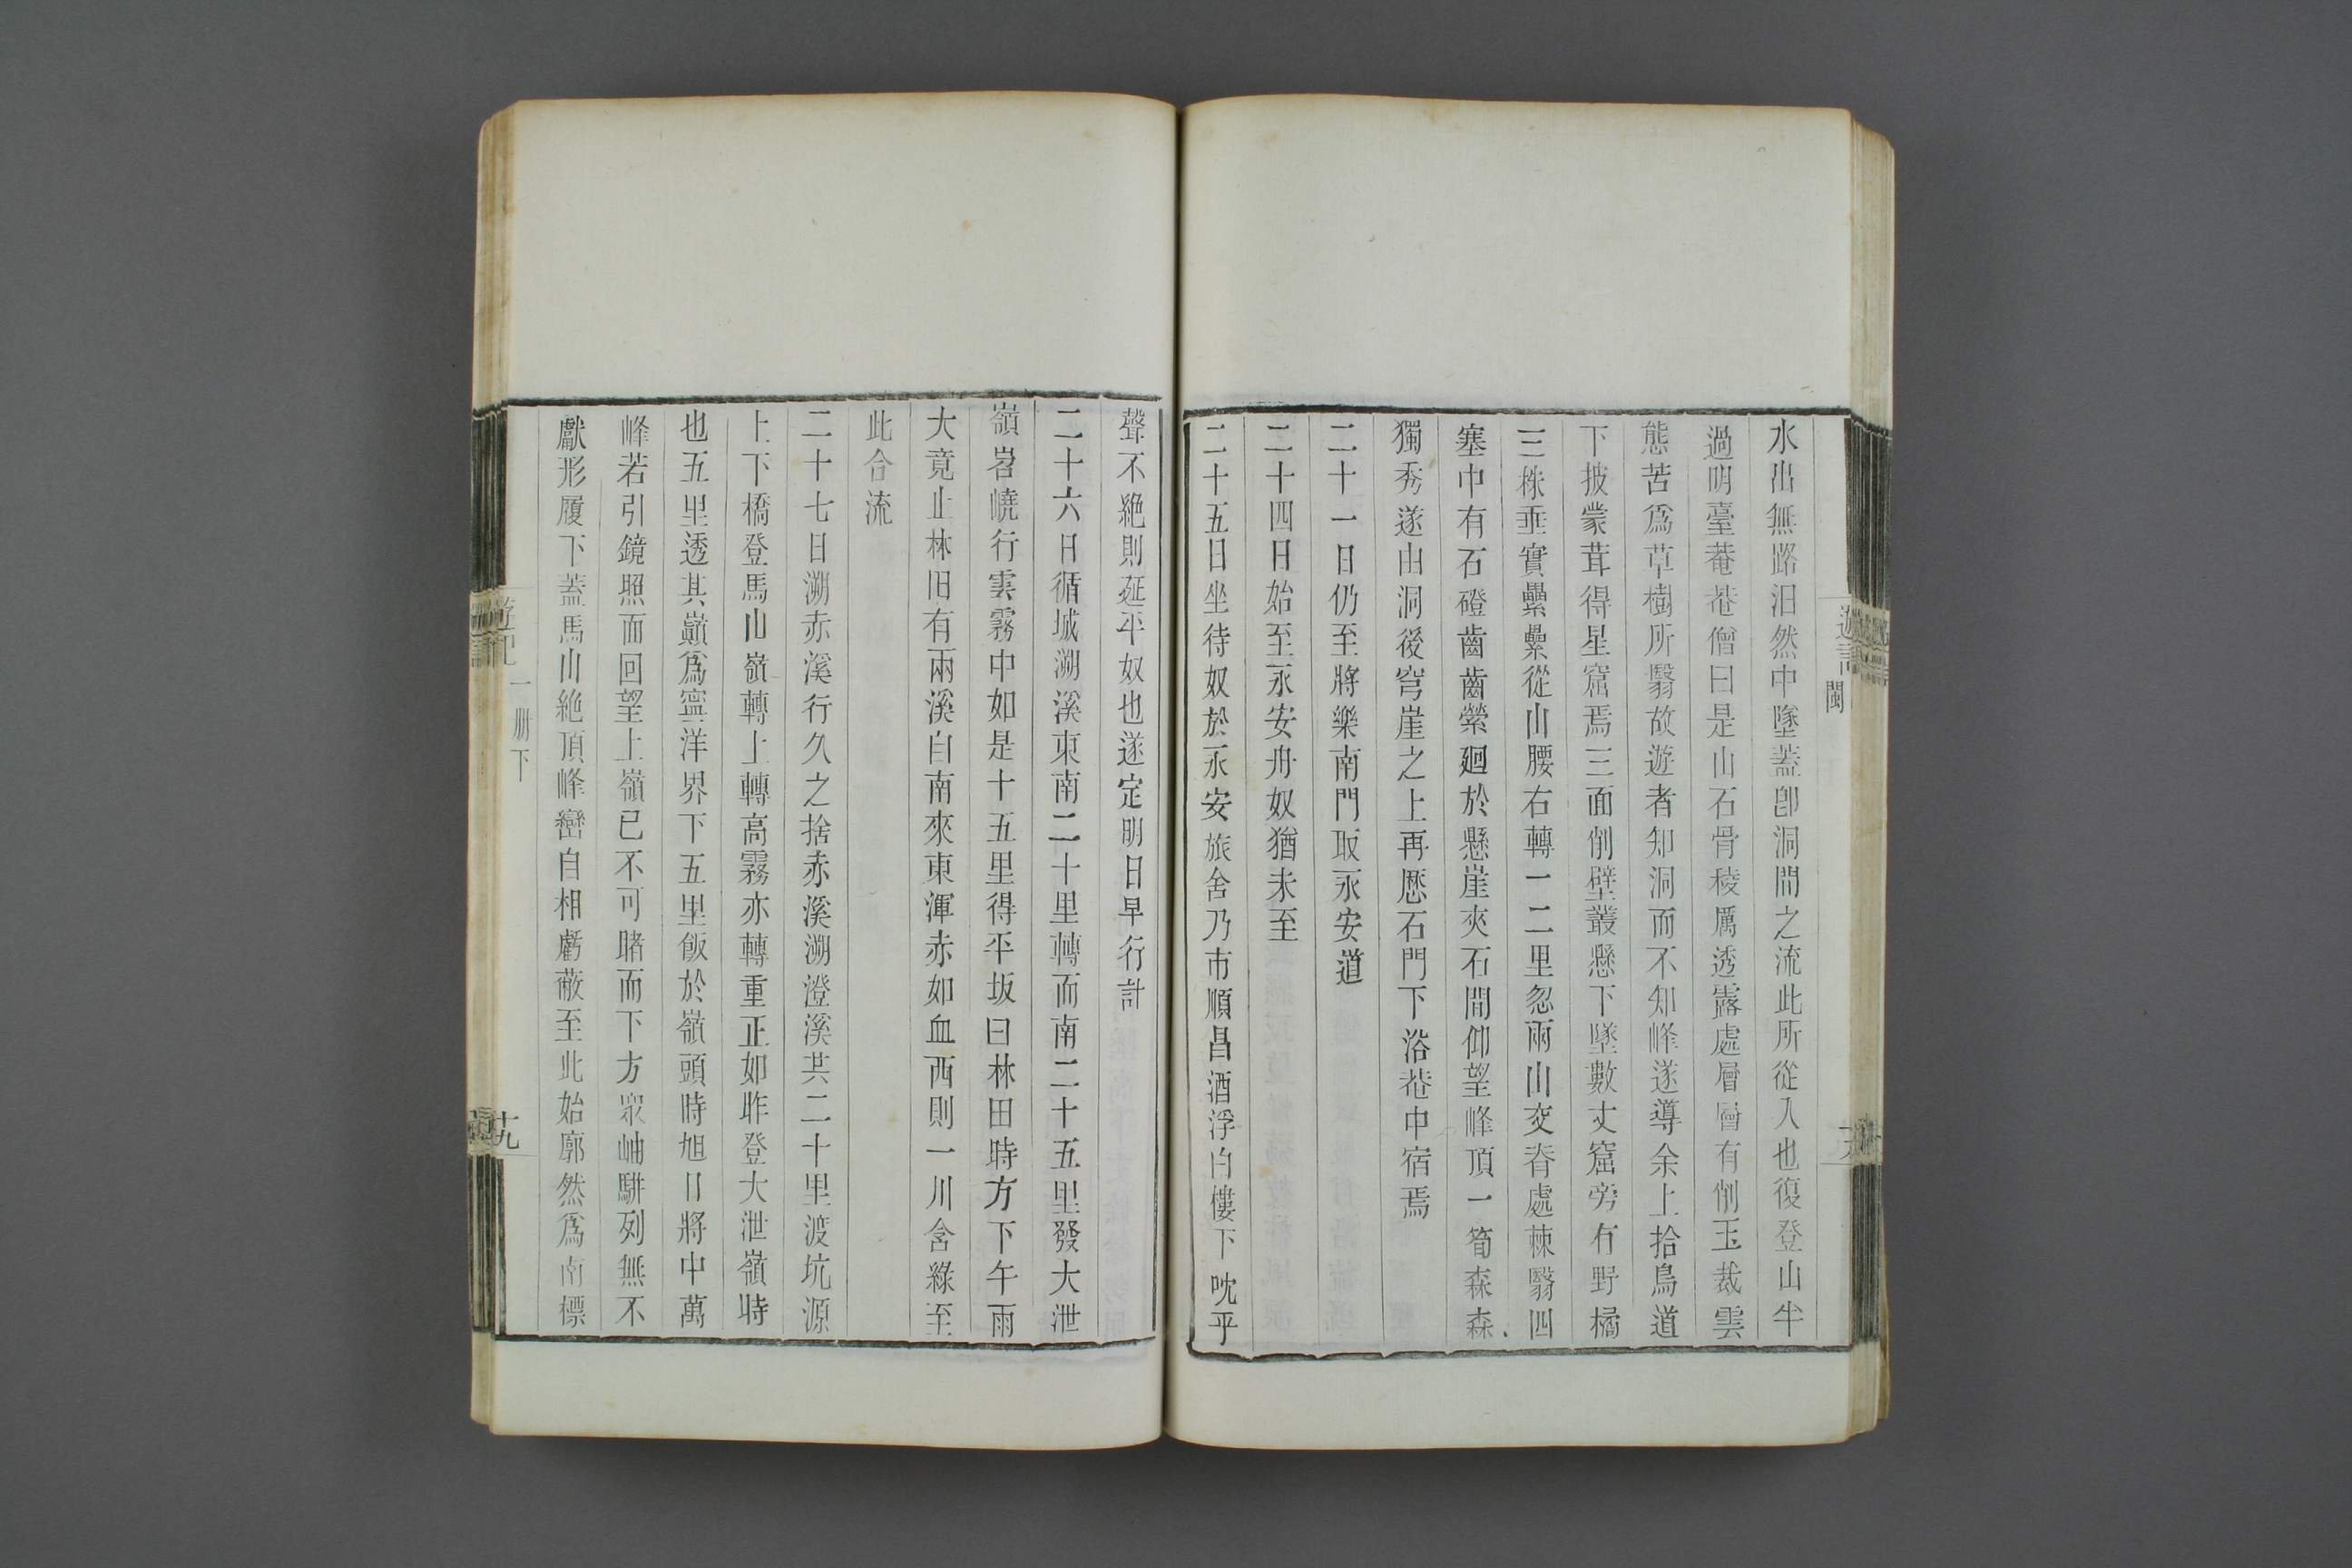 水出無路汨然中墜蓋卽洞間之流此所從入也復登山半
過明臺菴菴僧曰是山石骨稜厲透露處層層有削玉裁雲
態苦爲草樹所翳故遊者知洞而不知峰遂導余上拾鳥道
下披蒙茸得星窟焉三面削壁叢懸下墜數丈窟旁有野橘
三株垂實纍纍從山腰右轉一二里忽兩山交脊處棘翳四
塞中有石磴齒齒縈廻於懸崖夾石間仰望峰頂一筍森森
獨秀遂由洞後穹崖之上再歷石門下浴菴中宿焉
二十一日仍至將樂南門取永安道
二十四日始至永安舟奴猶未至
二十五日坐待奴於永安旅舍乃市順昌酒浮白樓下 忱乎
遊記
閩
聲不絕則延平奴也遂定明日早行計
二十六日循城溯溪東南二十里轉而南二十五里登大泄
嶺岧嶢行雲霧中如是十五里得平坂曰林田時方下午雨
大竟止林旧有兩溪自南來東渾赤如血西則一川含綠至
此合流
二十七日溯赤溪行久之捨赤溪溯澄溪共二十里渡坑源
上下橋登馬山嶺轉上轉高霧亦轉重正如昨登大泄嶺時
也五里透其巔爲寧洋界下五里飯於嶺頭時旭日將中萬
峰若引鏡照而回望上嶺已不可睹而下方衆岫駢列無不
獻形履下蓋馬山絕頂峰巒自相虧蔽至此始廓然爲南標
遊記
一册下
十九